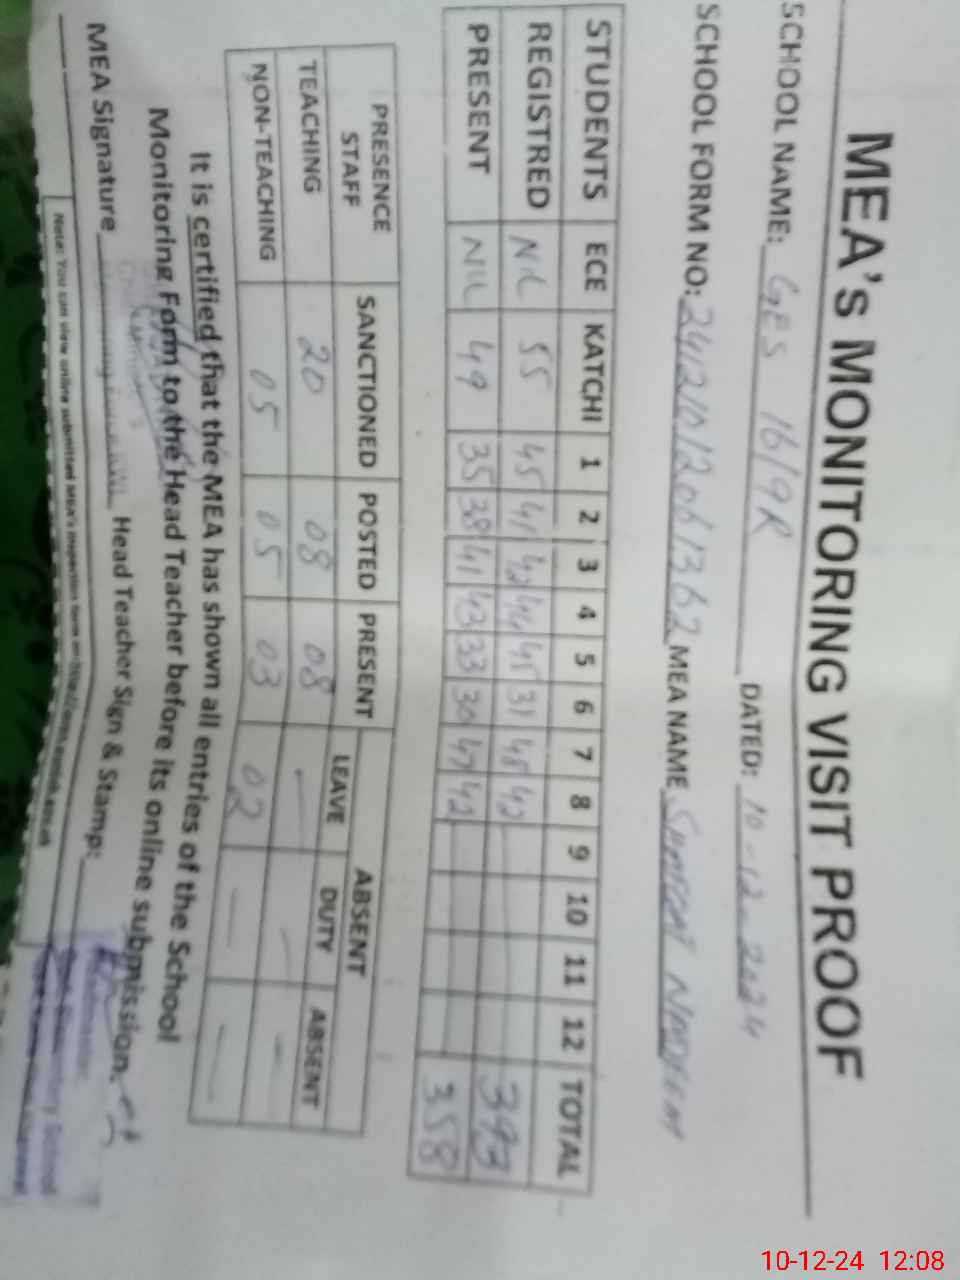 MEA's MONITORING VISIT PROOF
SCHOOL NAME: GES 16/9R DATED: 10-12-2024
SCHOOL FORM NO: MEA NAME
STUDENTS ECE KATCHI 1 2 3 4 5 6 7 8 9 10 11 12 TOTAL
REGISTRED NIL 55 45 41 42 44 45 31 48 42 393
PRESENT NIL 49 35 38 41 43 33 30 47 42 358
PRESENCE STAFF SANCTIONED POSTED PRESENT ABSENT
LEAVE DUTY ABSENT
TEACHING 20 08 08 — — —
NON-TEACHING 05 05 03 02 — —
It is certified that the MEA has shown all entries of the School
Monitoring Form to the Head Teacher before its online submission.
MEA Signature Head Teacher Sign & Stamp:
Note: You can view online submitted MEA's inspection form on
10-12-24 12:08